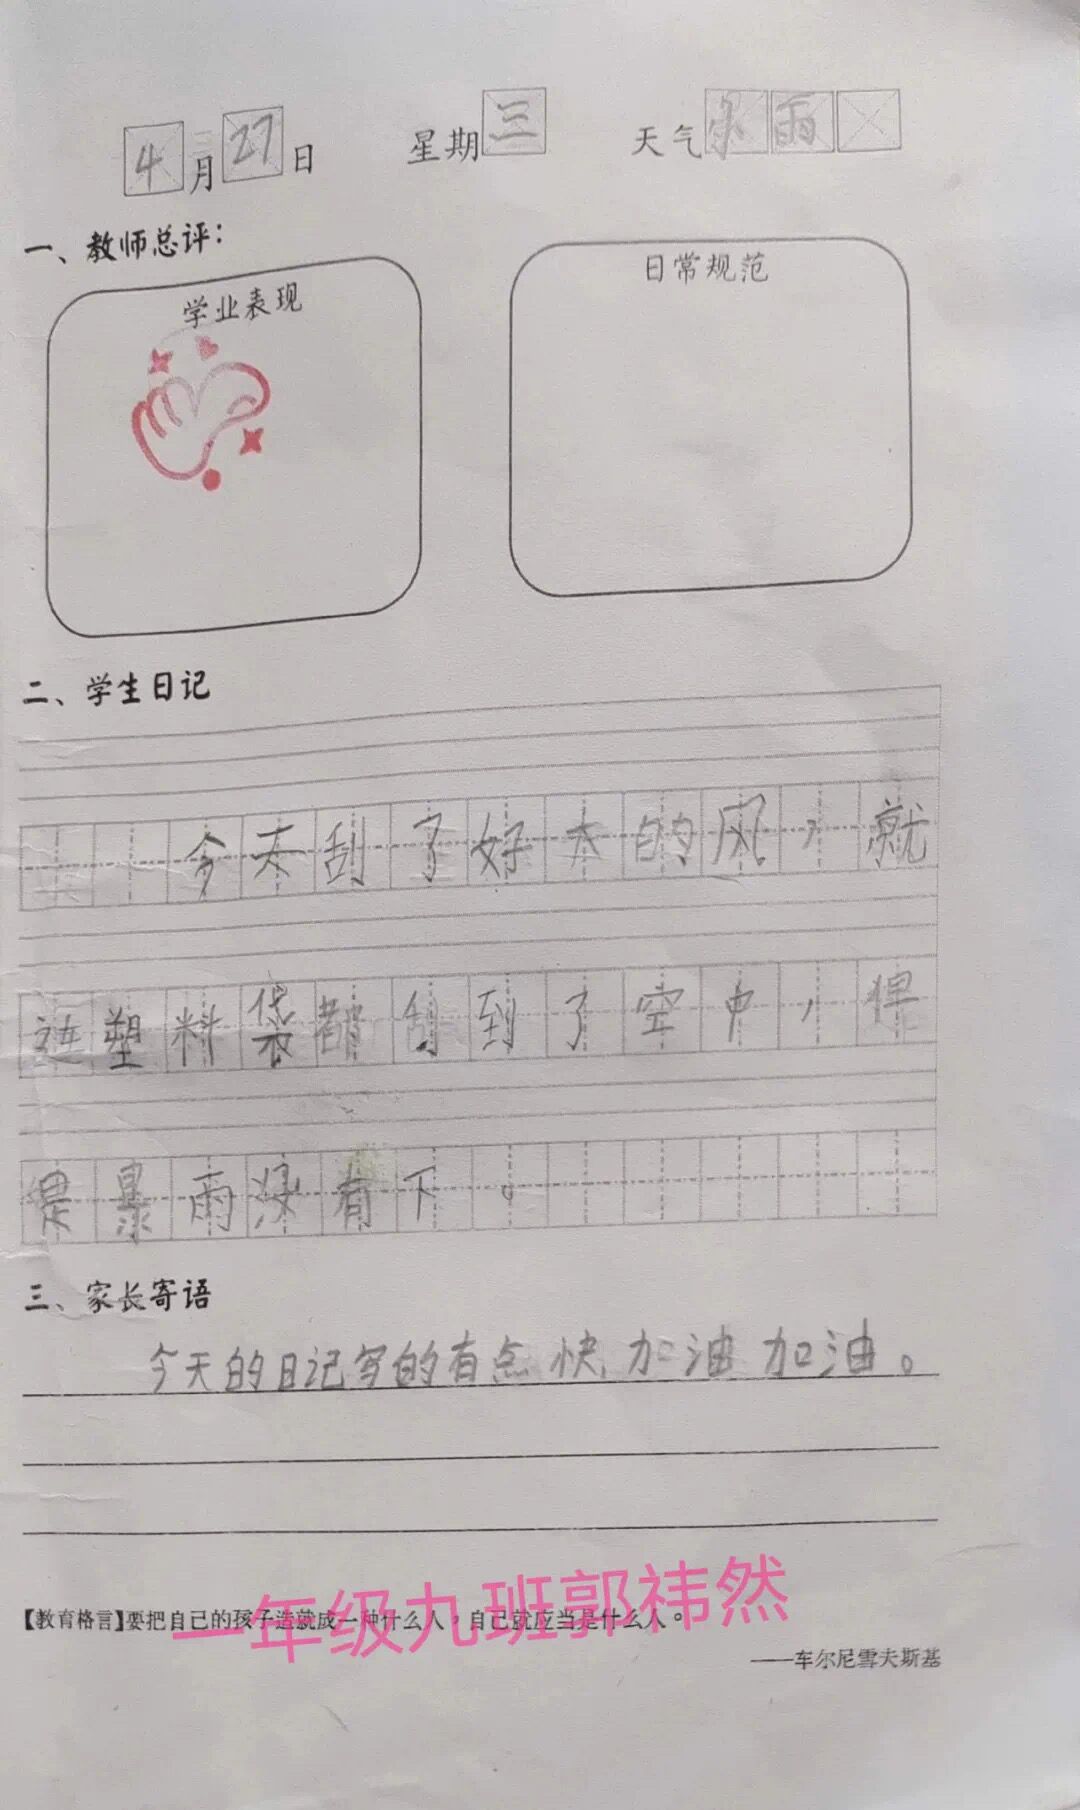 4月27日 星期三 天气 小雨
一、教师总评：
学业表现 日常规范
二、学生日记
今天刮了好大的风，就
连塑料袋都刮到了空中，但
是暴雨没有下。
三、家长寄语
今天的日记写的有点快，加油 加油。
一年级九班郭祎然
【教育格言】要把自己的孩子造就成一种什么人，自己就应当是什么人。
——车尔尼雪夫斯基